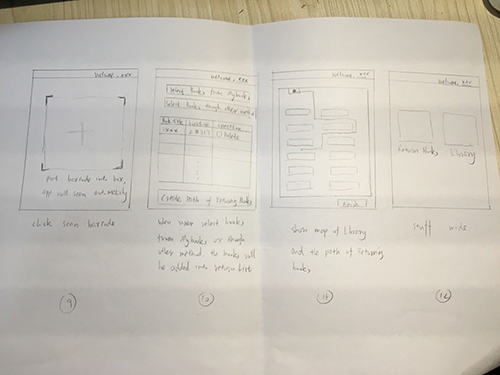 welcome, xxx
put barcode into box,
app will scan automatically
click scan barcode
9
welcome, xxx
Select books from my books
Select books through other method
Book title location operation
xxxx Delete
Create path of returning books
when user select books
from My books or through
other method. the books will
be added into return list
10
welcome, xxx
show map of Library
and the path of returning
books
11
welcome, xxx
Return Books Library
stuff mode
12